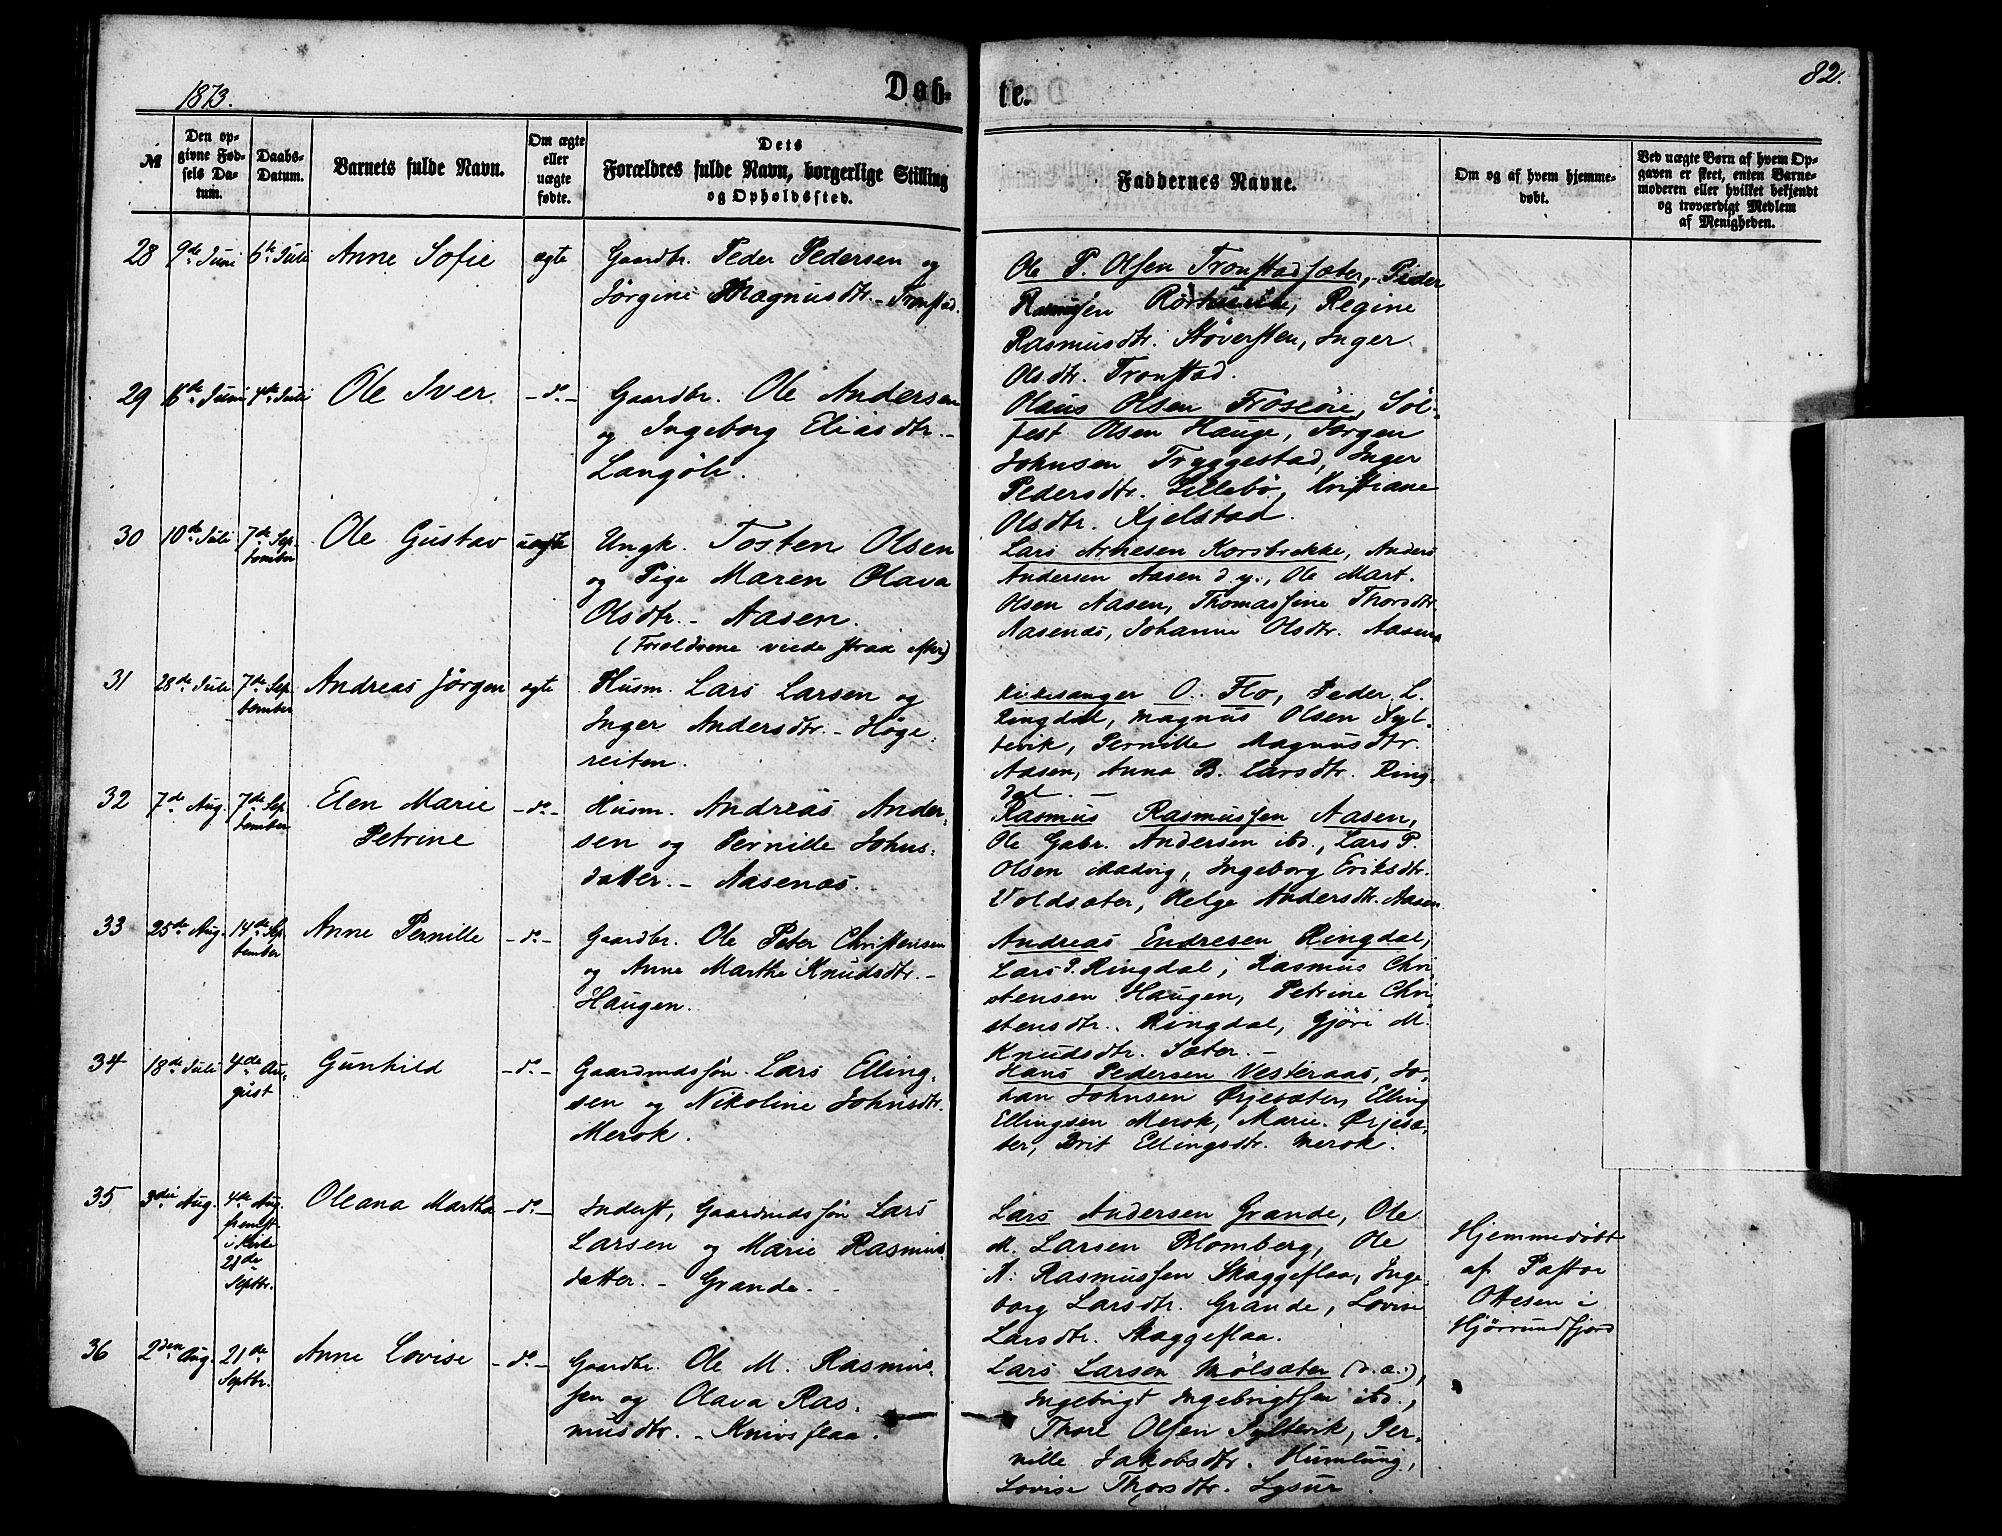 1873.
Døb-
te.
82.
№
Den op-
givne Fød-
sels Da-
tum.
Daabs-
Datum.
Barnets fulde Navn.
Om ægte
eller
uægte
fødte.
Dets
Forældres fulde Navn, borgerlige Stilling
og Opholdssted.
Faddernes Navne.
Om og af hvem hjemme-
døbt.
Ved uægte Børn af hvem Op-
gaven er skeet, enten Barne-
moderen eller hvilket bekjendt
og troværdigt Medlem
af Menigheden.
28 9de Juni 6te Juli Anne Sofie ægte
Gaardbr. Peder Pedersen og
Jørgine Magnusdtr. - Tronstad.
Ole P. Olsen Tronstadsæter, Peder
Rasmussen Regine
Rasmusdtr. Støversten, Inger
Olsdtr. Tronstad.
29 Juni Juli Ole Iver - do -
Gaardbr. Ole Andersen
og Ingeborg Eliasdtr. -
Langöli.
Olaus Olsen Froseöie, Söl-
fest Olsen Hauge, Jørgen
Johnsen Tryggestad, Inger
Pedersdtr. Lillebö, Kristiane
Olsdtr. Kjelstad.
30 10de Juli 7de Sep-
tember
Ole Gustav uægte
Ungk. Tosten Olsen
og Pige Maren Olava
Olsdtr. - Aasen.
(Foreldrene viede strax efter)
Lars Arnesen Korsbrekke, Anders
Andersen Aasen d.y., Ole Mart.
Olsen Aasen, Thomassine Thorsdtr.
Aasenæs, Johanne Olsdtr. Aasen
31 28de Juli 7de Sep-
tember
Andreas Jørgen ægte
Husm. Lars Larsen og
Inger Andersdtr. - Høge-
reiten.
Kirkesanger O. Flo, Peder L.
Ringdal, Magnus Olsen Syl-
tevik, Pernille Magnusdtr.
Aasen, Anna B. Larsdtr. Ring-
dal. -
32 7de Aug. 7de Sep-
tember
Elen Marie
Petrine
- do -
Husm. Andreas Ander-
sen og Pernille Johns-
datter. - Aasenæs.
Rasmus Rasmussen Aasen,
Ole Gabr. Andersen ibd., Lars P.
Olsen Madvig, Ingeborg Eriksdtr.
Voldsæter, Helge Andersdtr. Aasen
33 25de Aug. 14de Sep-
tember
Anne Pernille - do -
Gaardbr. Ole Peter Christensen
og Anne Marthe Knudsdtr. -
Haugen.
Andreas Endresen Ringdal,
Lars P. Ringdal, Rasmus Chri-
stensen Haugen, Petrine Chri-
stensdtr. Ringdal, Gjöri M.
Knudsdtr. Sæter. -
34 18de Juli 4de Au-
gust
Gunhild - do -
Gaardmdssøn Lars Elling-
sen og Nikoline Johnsdtr.
Merok.
Hans Pedersen Vesteraas, Jo-
han Johnsen Ørjesæter, Elling
Ellingsen Merok, Marie Ørjesæ-
ter, Brit Ellingsdtr. Merok.
35 3die Aug. 4de Aug.
fremst.
i Kirke
21de
Septbr.
Oleana Martha - do -
Inderst, Gaardmdssøn Lars
Larsen og Marie Rasmus-
datter. - Grande. -
Lars Andersen Grande, Ole
M. Larsen Blomberg, Ole
A. Rasmussen Skaggeflaa, Inge-
borg Larsdtr. Grande, Lovise
Larsdtr. Skaggeflaa.
Hjemmedøbt
af Pastor
Ottesen i
Hjørrundfjord
36 2den Aug. 21de
Septbr.
Anne Lovise - do -
Gaardbr. Ole M. Rasmus-
sen og Olava Ras-
musdtr. - Knivsflaa.
Lars Larsen Mölsæter (d.æ.),
Ingebrigt Ingebrigtsen ibd.,
Thore Olsen Syltevik, Per-
nille Jakobsdtr. Humlung,
Lovise Thorsdtr. Lysur.